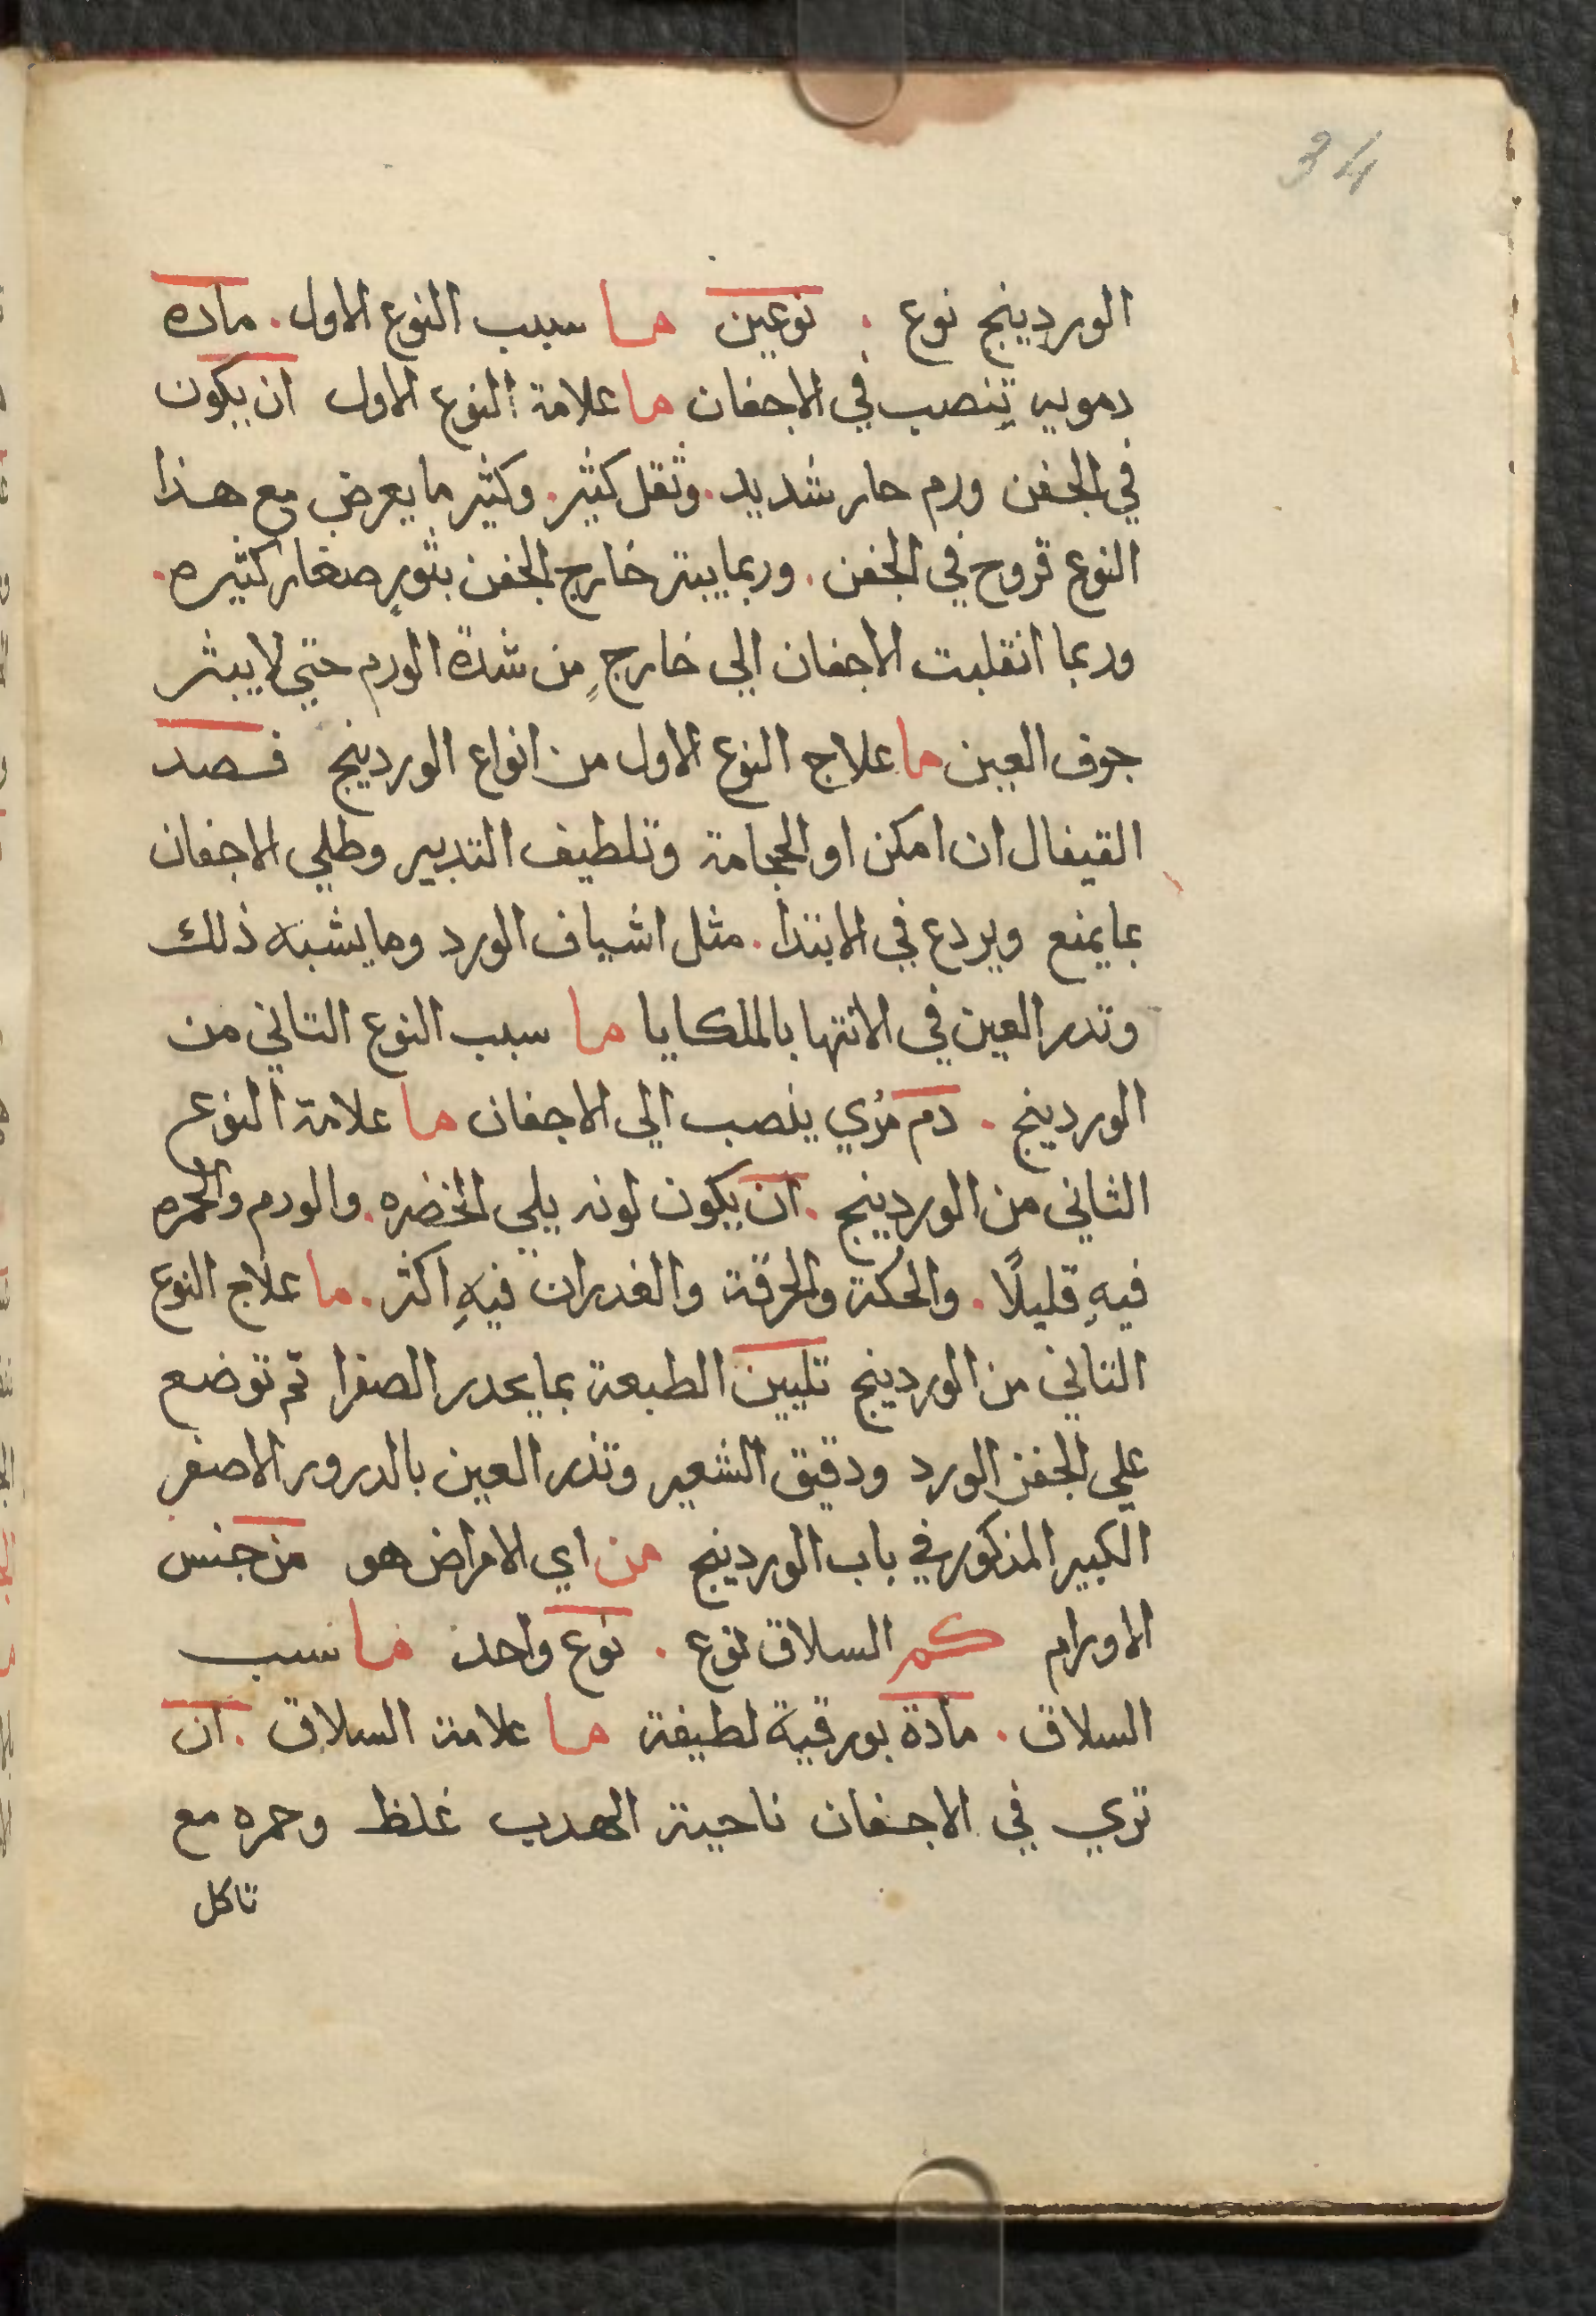 34
الوردينج نوع . نوعين ما سبب النوع الاول . ماده
دمويه تنصب في الاجفان ما علامة النوع الاول ان يكون
في الجفن ورم حار شديد . وثقل كثير . وكثير ما يعرض مع هذا
النوع قروح في الجفن . وربما يبتر خارج الجفن بثورٍ صغار كثيره .
وربما انقلبت الاجفان الي خارجٍ من شدة الورم حتي لا يبثر
جوف العين ما علاج النوع الاول من انواع الوردينج فصد
القيفال ان امكن او الحجامة وتلطيف التدبير وطلي الاجفان
بما يمنع ويردع في الابتدا . مثل اشياف الورد وما يشبه ذلك
وتدر العين في الانتها بالملكايا ما سبب النوع التاني من
الوردينج . دم مرُي ينصب الي الاجفان ما علامة النوع
الثاني من الوردينج . ان يكون لونه يلي الخضره . والورم والحمره
فيهِ قليلاً . والحكة والحرقة والغدران فيهِ اكثر . ما علاج النوع
التاني من الوردينج تليين الطبعة بما يحدر الصفرا تم توضع
علي الجفن الورد ودقيق الشعير وتذر العين بالدرور الاصفر
الكبير المذكور في باب الوردينج من اي الامراض هو من جنس
الاورام كم السلاق نوع . نوع واحد فما سبب
السلاق . مادة بورقية لطيفة ما علامة السلاق . ان
تري في الاجفان ناحية الهدب غلظ وحمره مع
تاكل